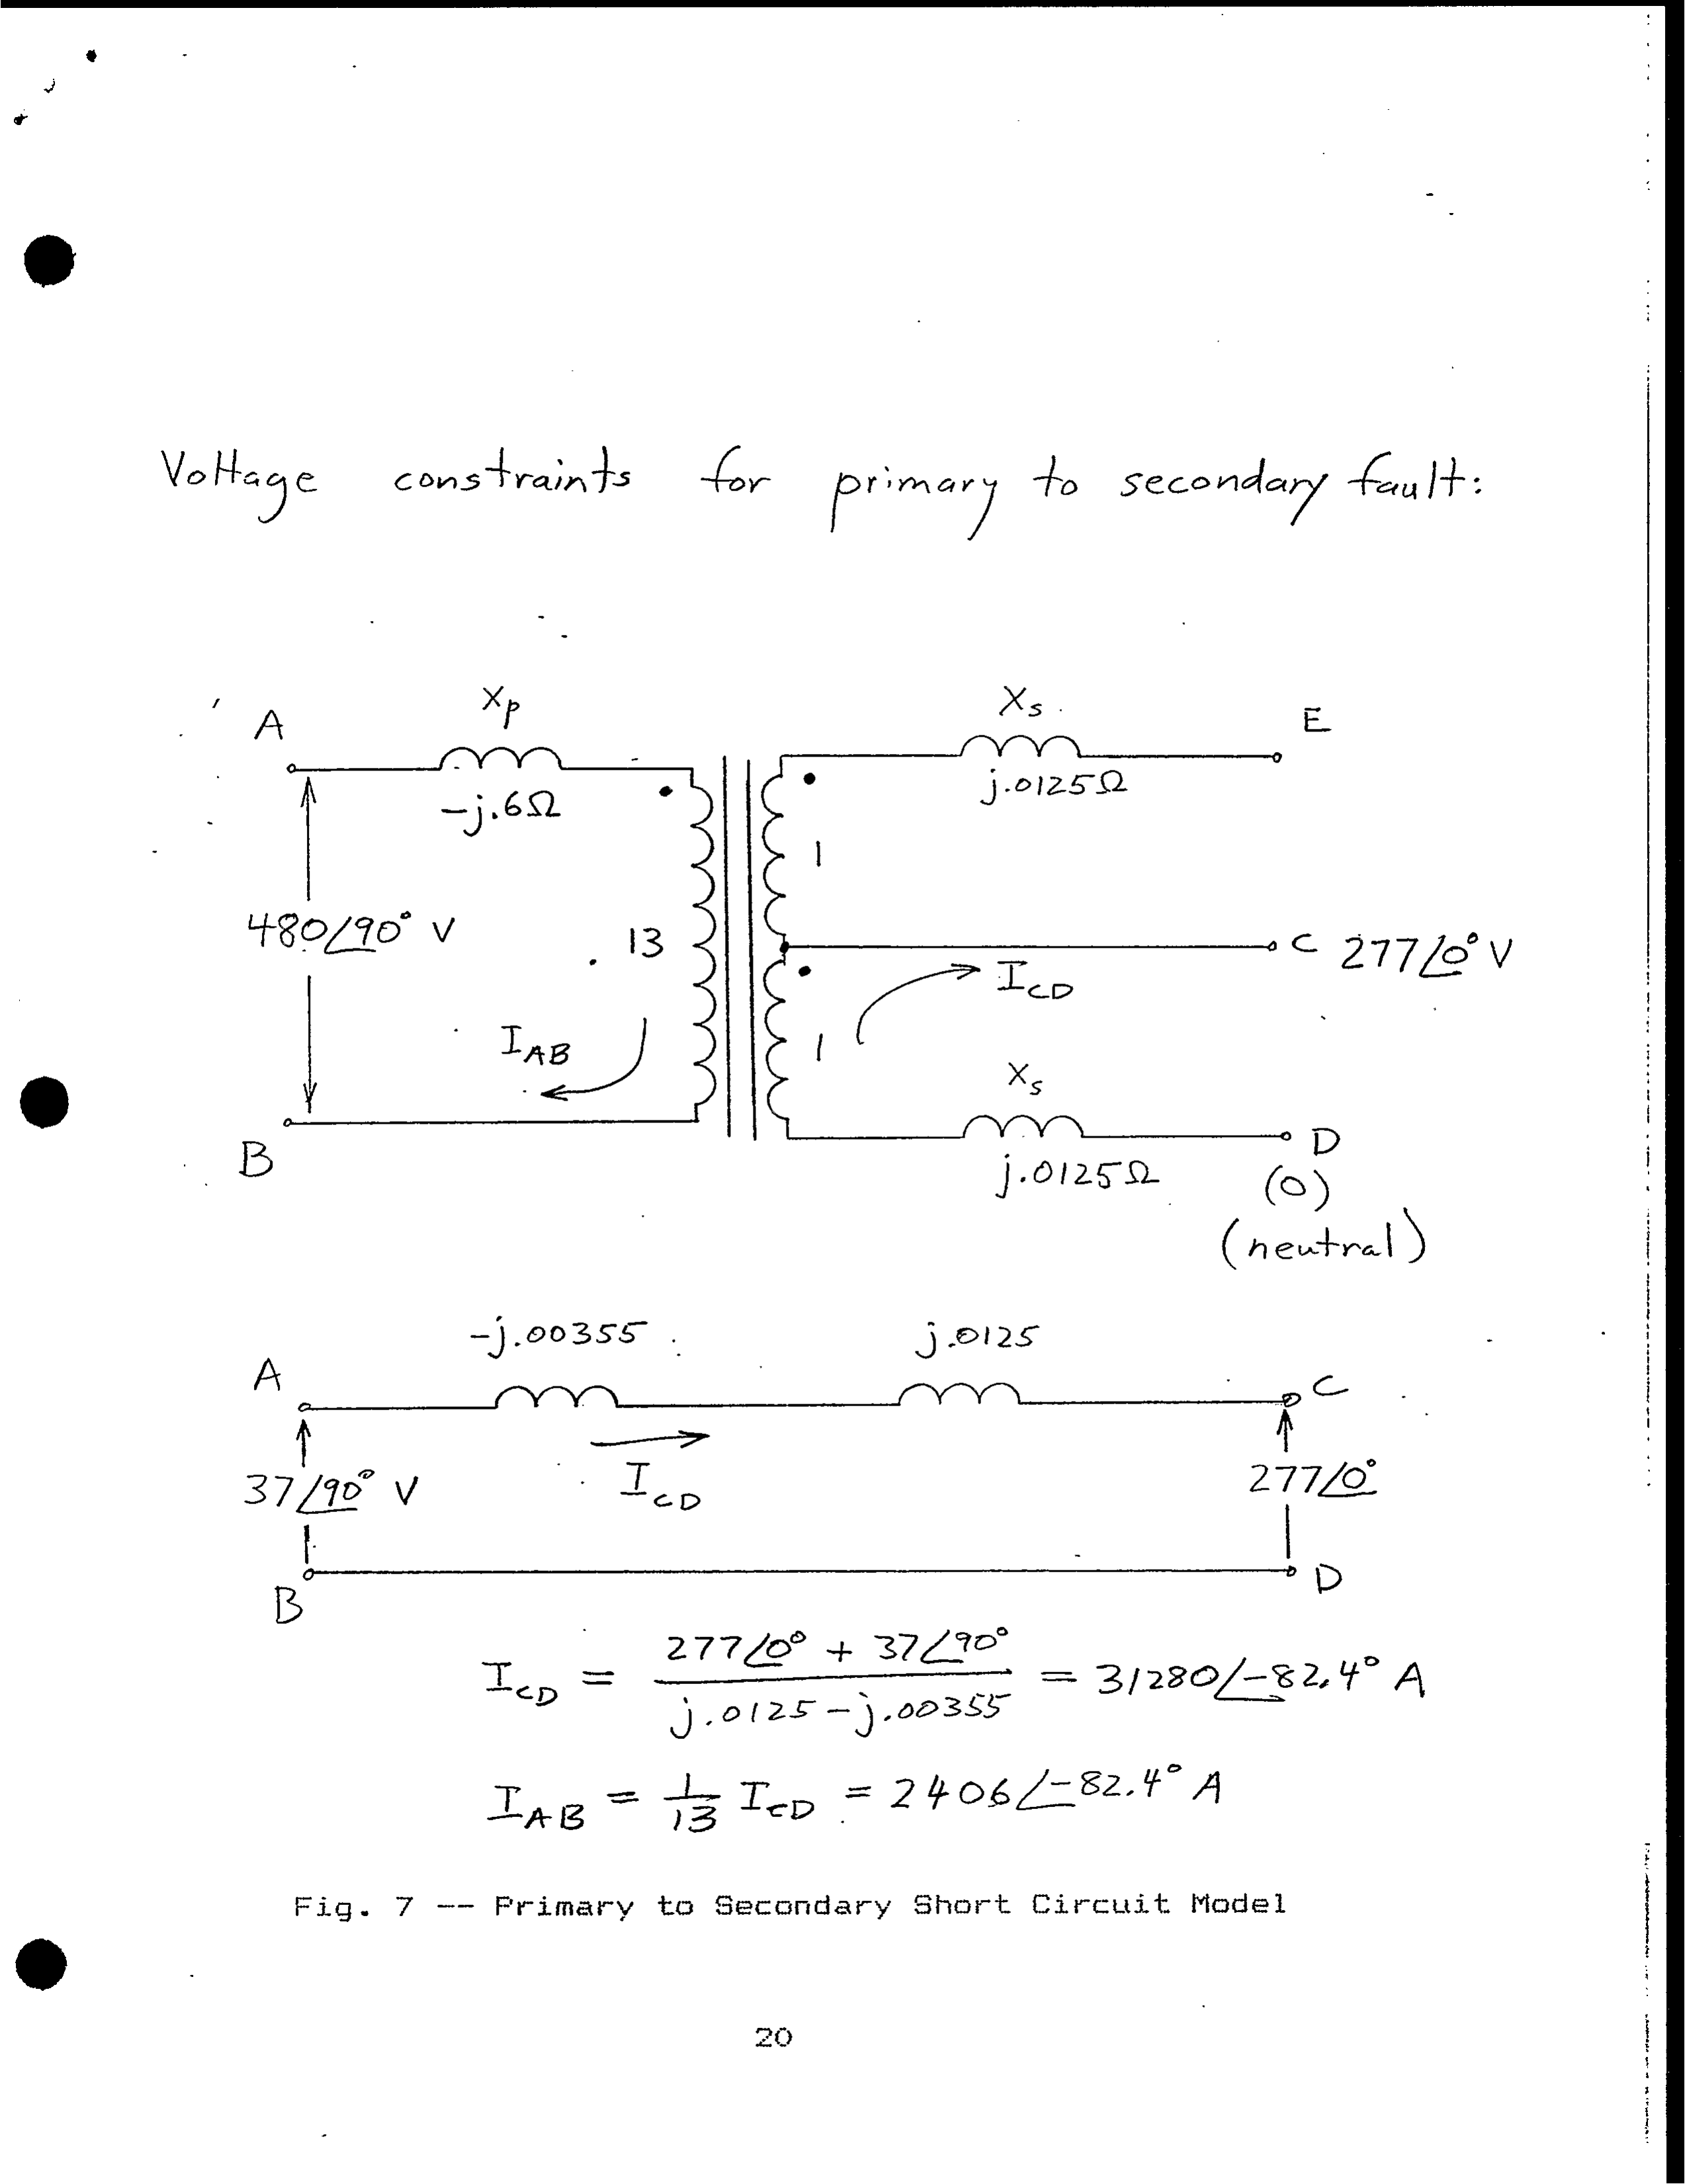 Voltage constraints for primary to secondary fault:
A
Xp
-j.6Ω
Xs
j.0125Ω
E
480∠90° V
13
1
C 277∠0° V
ICD
IAB
1
Xs
B
j.0125Ω
D
(0)
(neutral)
A
-j.00355
j.0125
C
37∠90° V
ICD
277∠0°
B
D
ICD = 277∠0° + 37∠90° / j.0125 - j.00355 = 31280∠-82.4° A
IAB = 1/13 ICD = 2406∠-82.4° A
Fig. 7 -- Primary to Secondary Short Circuit Model
20